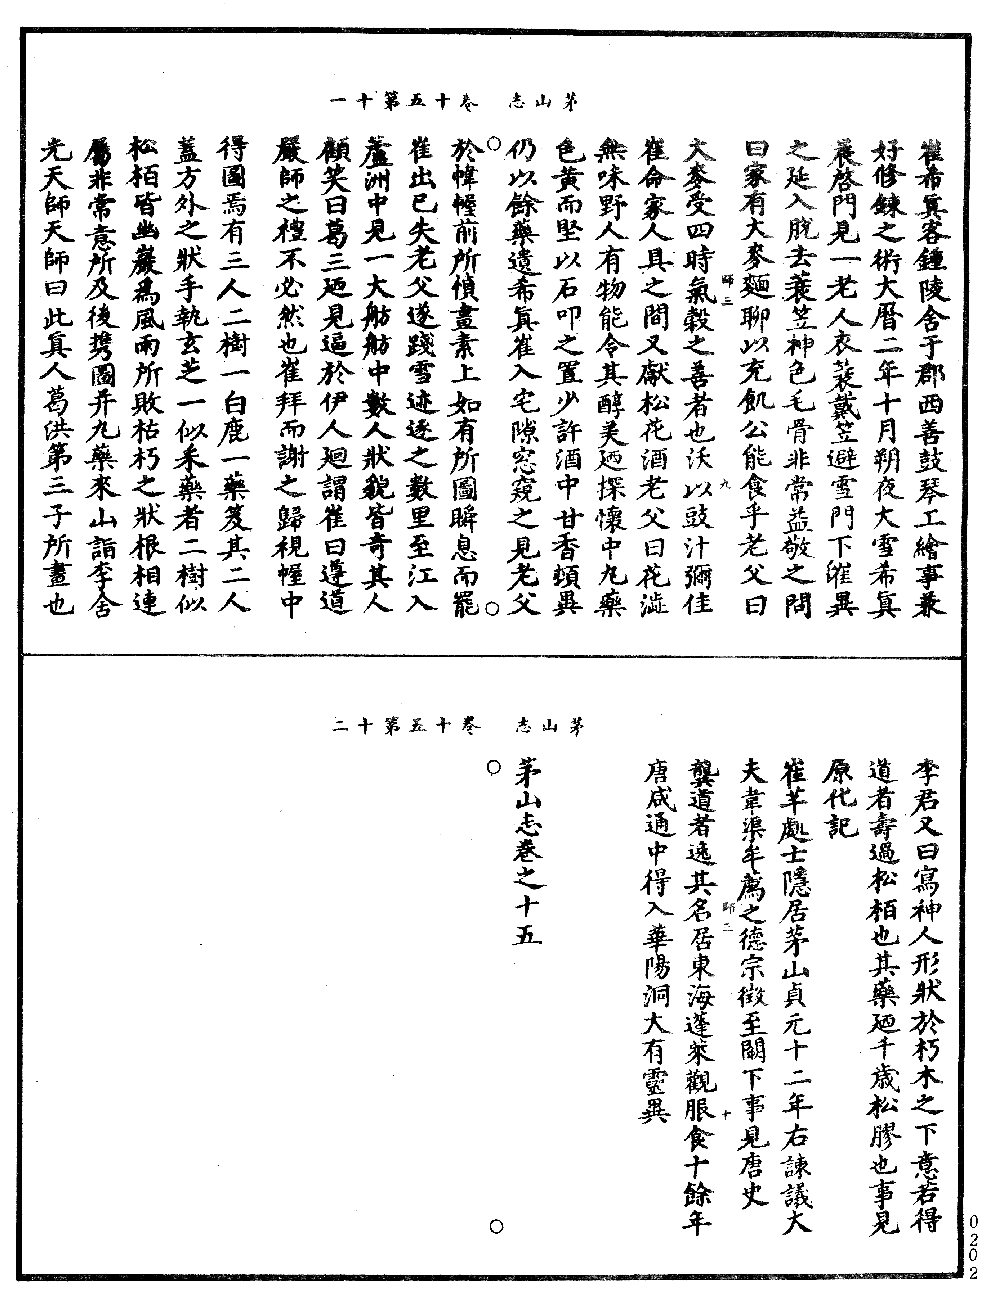 茅山志　卷十五第十一
崔希真客鍾陵舍于郡西善鼓琴工繪事兼
好修鍊之術大曆二年十月朔夜大雪希真
晨啓門見一老人衣蓑戴笠避雪門下崔異
之延入脫去蓑笠神色毛骨非常益敬之問
曰家有大麥麵聊以充飢公能食乎老父曰
師三
九
大麥受四時氣穀之善者也沃以豉汁彌佳
崔命家人具之間又獻松花酒老父曰花澁
無味野人有物能令其醇美廼探懷中九藥
色黃而堅以石叩之置少許酒中甘香頓異
仍以餘藥遺希真崔入宅隙窓窺之見老父
於幃幄前所偵畫素上如有所圖瞬息而罷
崔出已失老父遂踐雪迹逐之數里至江入
蘆洲中見一大舫舫中數人狀貌皆奇其人
顧笑曰葛三廼見逼於伊人廻謂崔曰遵道
嚴師之禮不必然也崔拜而謝之歸視幄中
得圖焉有三人二樹一白鹿一藥笈其二人
蓋方外之狀手執玄芝一似采藥者二樹似
松栢皆幽巖為風雨所敗枯朽之狀根相連
屬非常意所及後携圖幷九藥來山詣李舍
光天師天師曰此真人葛洪第三子所畫也
茅山志　卷十五第十二
李君又曰寫神人形狀於朽木之下意若得
道者壽過松栢也其藥廼千歲松膠也事見
原化記
崔芊處士隱居茅山貞元十二年右諫議大
夫韋渠牟薦之德宗徵至闕下事見唐史
師三
十
龔道者逸其名居東海蓬萊觀服食十餘年
唐咸通中得入華陽洞大有靈異
茅山志卷之十五
0202